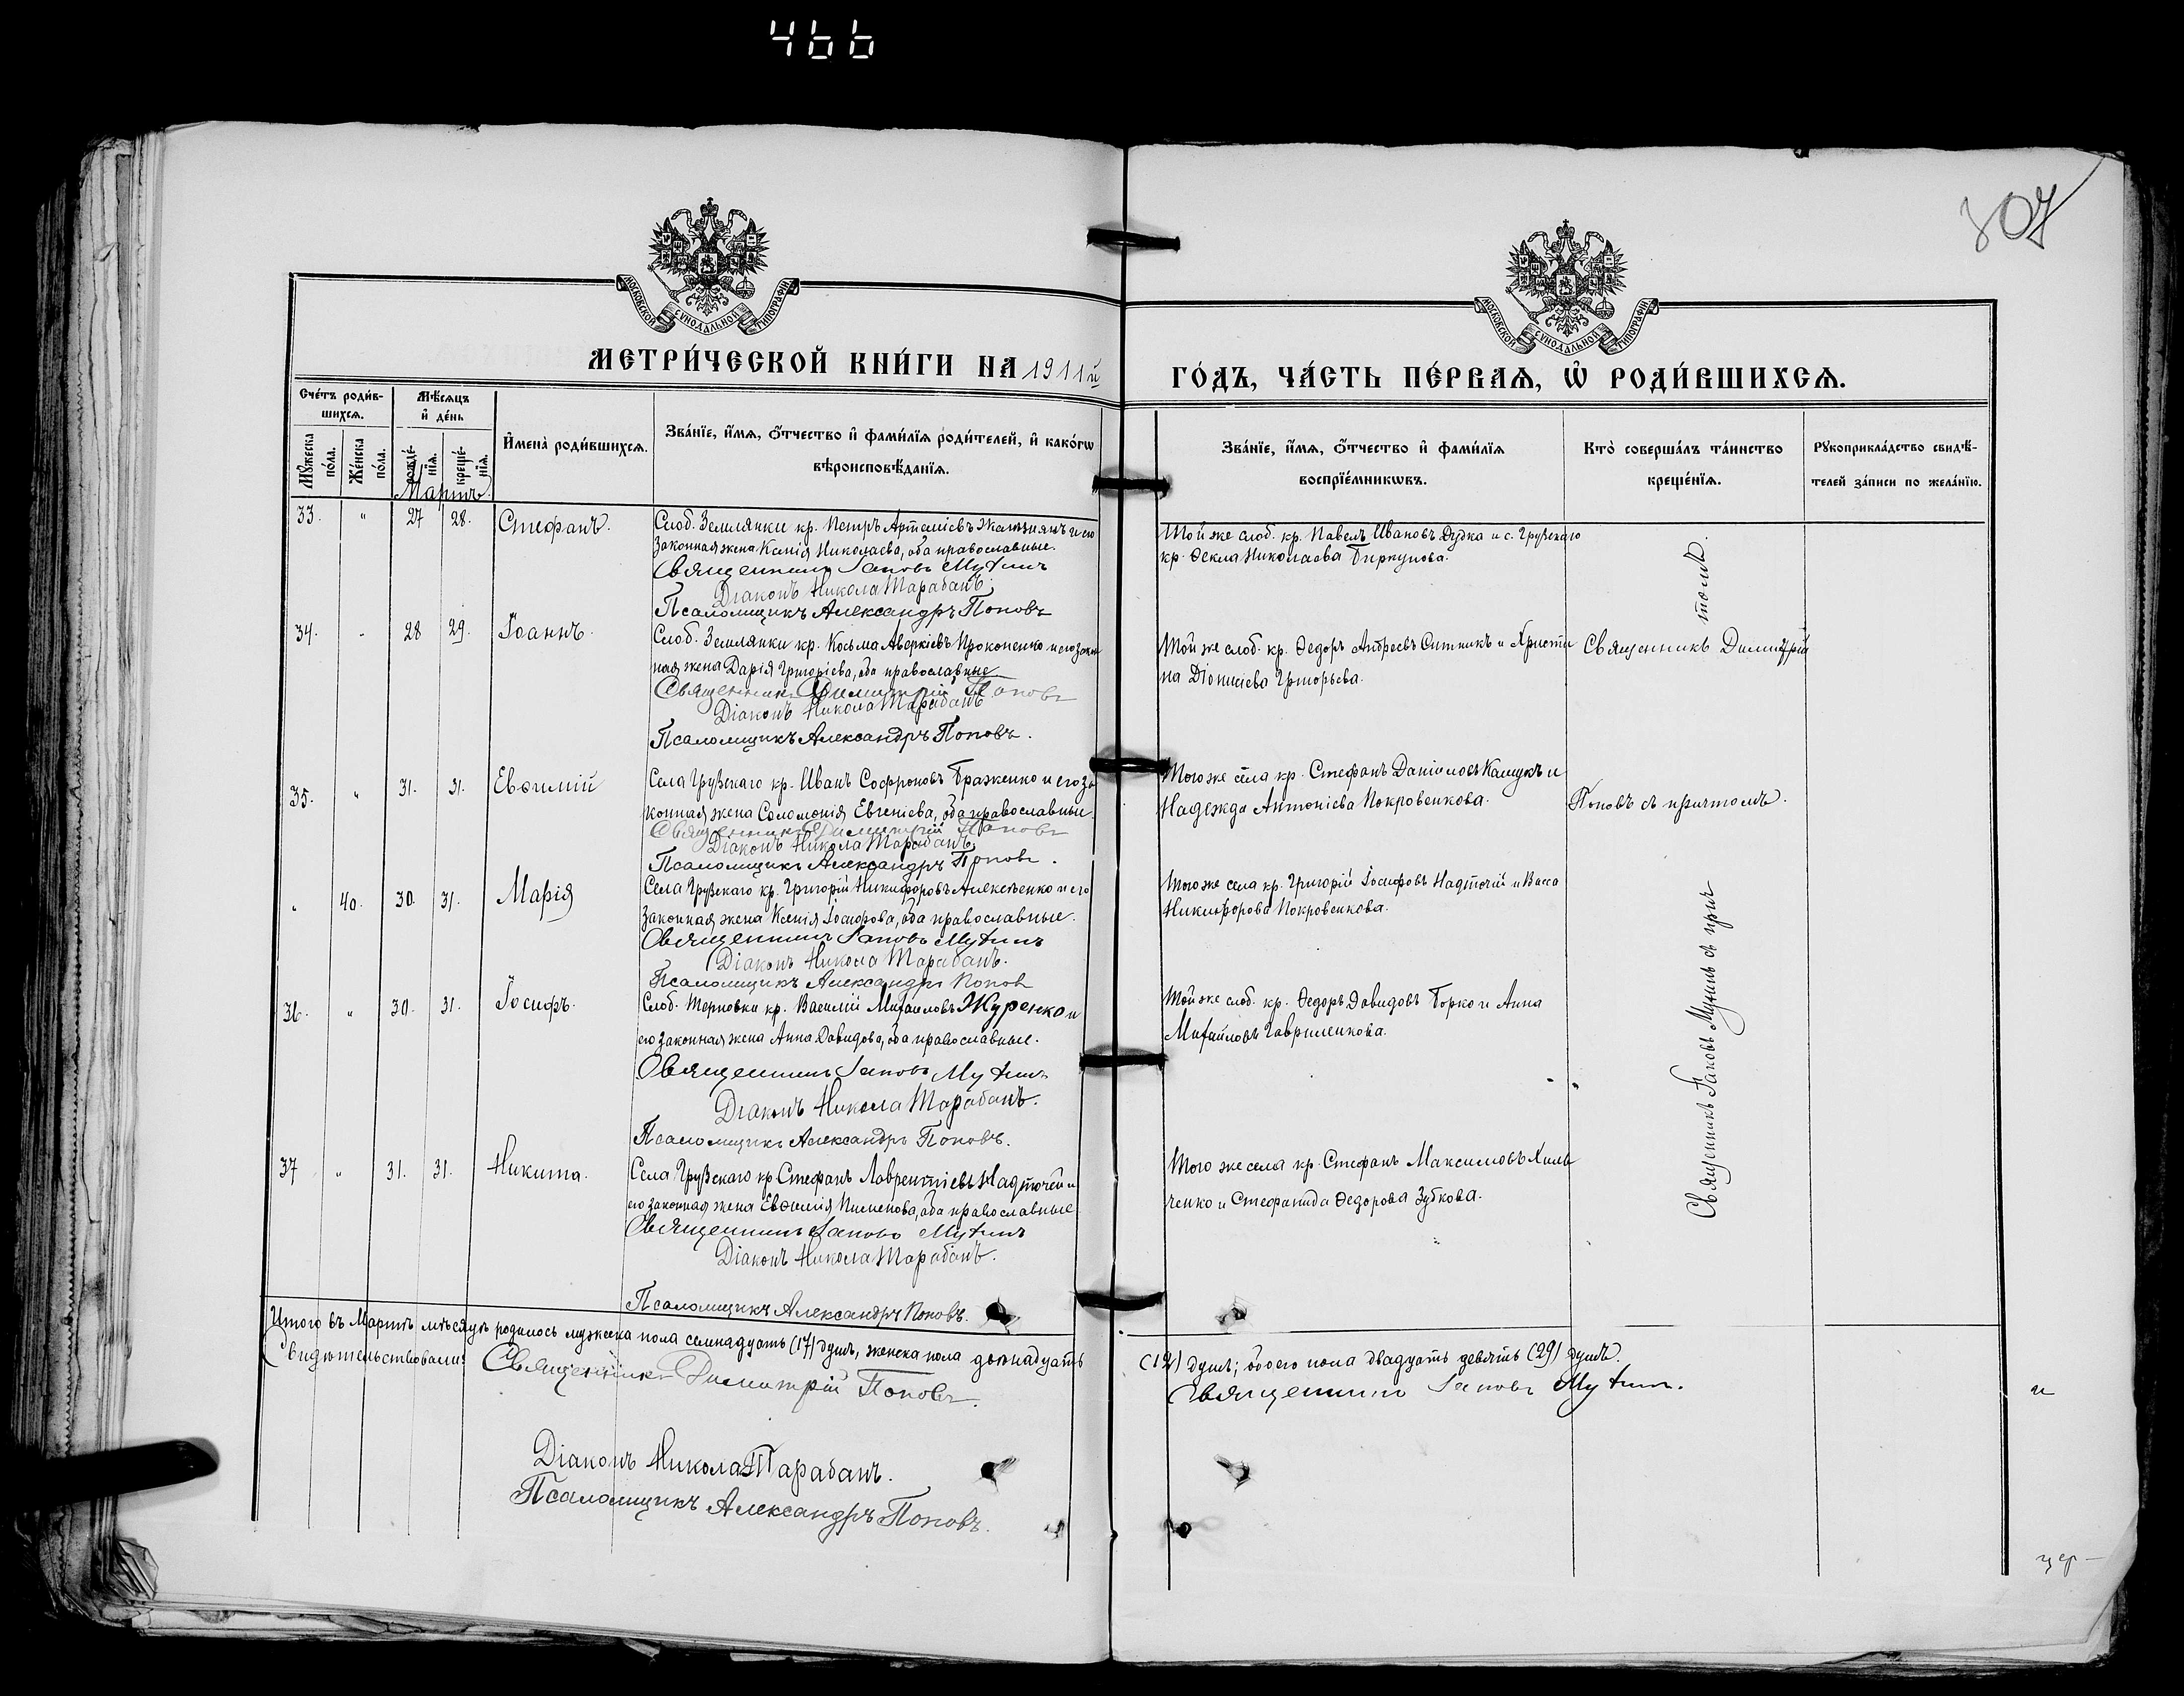 466
307
МОСКОВСКОЙ СѴНОДАЛЬНОЙ ТИПОГРАФІИ
МОСКОВСКОЙ СѴНОДАЛЬНОЙ ТИПОГРАФІИ
МЕТРИ́ЧЕСКОЙ КНИ́ГИ НА 1911й
ГО́ДЪ, ЧА́СТЬ ПЕ́РВАѦ, Ѡ҆ РОДИ́ВШИХСѦ.
Сче́тъ роди́в-
шихсѧ.
Мѣ́сѧцъ
и҆ де́нь
Мꙋ́жеска
по́ла.
Же́нска
по́ла.
рожде́-
нїѧ.
креще́-
нїѧ.
И҆мена̀ роди́вшихсѧ.
Зва́нїе, и҆́мѧ, ѻ҆́тчество и҆ фами́лїѧ роди́телей, и҆ како́гѡ
вѣроисповѣ́данїѧ.
Зва́нїе, и҆́мѧ, ѻ҆́тчество и҆ фами́лїѧ
воспрїе́мникѡвъ.
Кто̀ соверша́лъ та́инство
креще́нїѧ.
Рꙋкоприкла́дство свидѣ́-
телей за́писи по жела́нїю.
Мартъ.
33. " 27 28. Стефанъ.
Слоб. Землянки кр. Петръ Артеміевъ и его
законная жена Ксенія Николаева, оба православные.
Священникъ Іаковъ Мухинъ
Діаконъ Никола Тарабанъ.
Псаломщикъ Александръ Поповъ
Той же слоб. кр. Павелъ Ивановъ Дудка и с. Грузскаго
кр. Ѳекла Николаева Биркунова.
34. " 28 29. Іоаннъ.
Слоб. Землянки кр. Косьма Аверкіевъ Прокопенко и его закон
ная жена Дарія Григоріева, оба православные
Священникъ Димитрій Поповъ
Діаконъ Никола Тарабанъ
Псаломщикъ Александръ Поповъ.
Той же слоб. кр. Ѳедоръ Андреевъ Ситникъ и Христи
на Діонисіева Григорьева.
35. " 31. 31. Евѳимій
Села Грузскаго кр. Иванъ Софроновъ Браженко и его за
конная жена Соломонія Евгеніева, оба православные.
Священникъ Димитрій Поповъ
Діаконъ Никола Тарабанъ
Псаломщикъ Александръ Поповъ.
Того же села кр. Стефанъ Даніиловъ и
Надежда Антоніева Покровенкова.
" 40. 30. 31. Марія
Села Грузскаго кр. Григорій Никифоровъ Алексѣенко и его
законная жена Ксенія Іосифова, оба православные.
Священникъ Іаковъ Мухинъ
Діаконъ Никола Тарабанъ.
Псаломщикъ Александръ Поповъ
Того же села кр. Григорій Іосифовъ Надточій и Васса
Никифорова Покровенкова.
36. " 30. 31. Іосифъ.
Слоб. Терновки кр. Василій Михаиловъ Журенко и
его законная жена Анна Давидова, оба православные.
Священникъ Іаковъ Мухинъ
Діаконъ Никола Тарабанъ.
Псаломщикъ Александръ Поповъ.
Той же слоб. кр. Ѳедоръ Давидовъ Борко и Анна
Михайловъ Гавриленкова.
37 " 31. 31. Никита.
Села Грузскаго кр Стефанъ Лаврентіевъ Надточей и
его законная жена Евѳимія Пименова, оба православные
Священникъ Іаковъ Мухинъ
Діаконъ Никола Тарабанъ.
Псаломщикъ Александръ Поповъ.
Того же села кр. Стефанъ Максимовъ Хиль
ченко и Стефанида Ѳедорова Зубкова.
Священникъ Димитрій
Поповъ съ причтомъ.
Священникъ Іаковъ Мухинъ съ прич
томъ.
Итого въ Мартѣ мѣсяцѣ родилось мужеска пола семнадцать (17) душъ, женска пола двѣнадцать
(12) душъ; обоего пола двадцать девять (29) душъ.
Свидѣтельствовали: Священникъ Димитрій Поповъ.
Священникъ Іаковъ Мухинъ.
Діаконъ Никола Тарабанъ.
Псаломщикъ Александръ Поповъ.
и
цер-